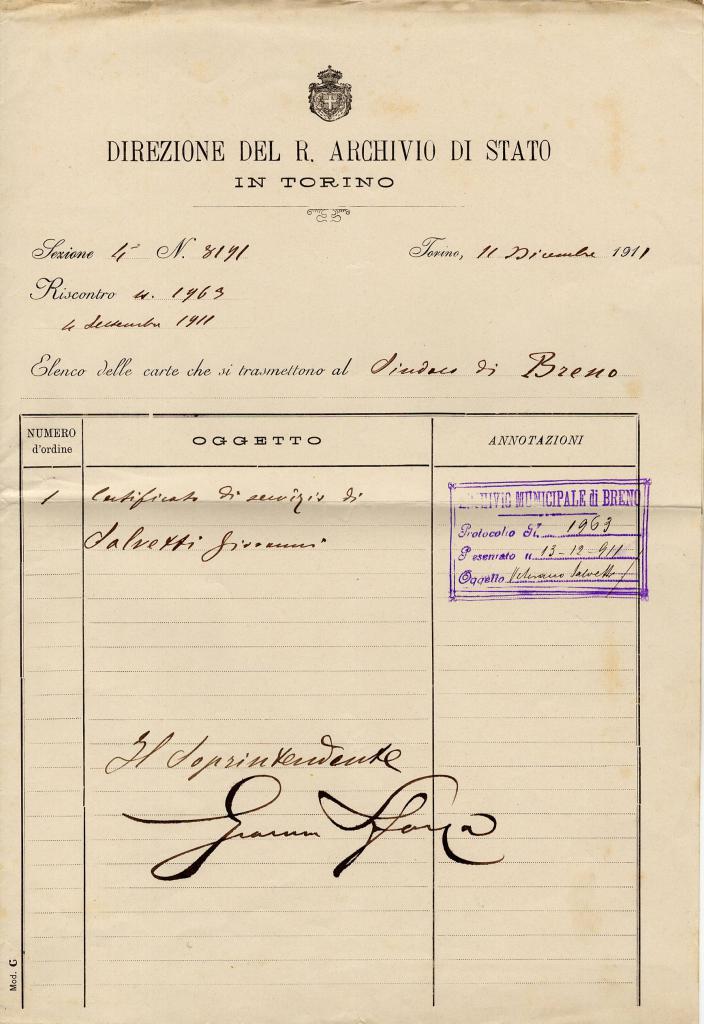 DIREZIONE DEL R. ARCHIVIO DI STATO
IN TORINO
Sezione 4ª N. 8191
Torino, 11 Dicembre 1911
Riscontro n. 1963
4 Settembre 1911
Elenco delle carte che si trasmettono al Sindaco di Breno
NUMERO
d'ordine
OGGETTO
ANNOTAZIONI
1 Certificato di servizio di
Salvetti Giovanni
ARCHIVIO MUNICIPALE di BRENO
Protocollo N. 1963
Presentato il 13-12-911
Oggetto Veterano Salvetti
Il Soprintendente
Giovanni Sforza
Mod. G